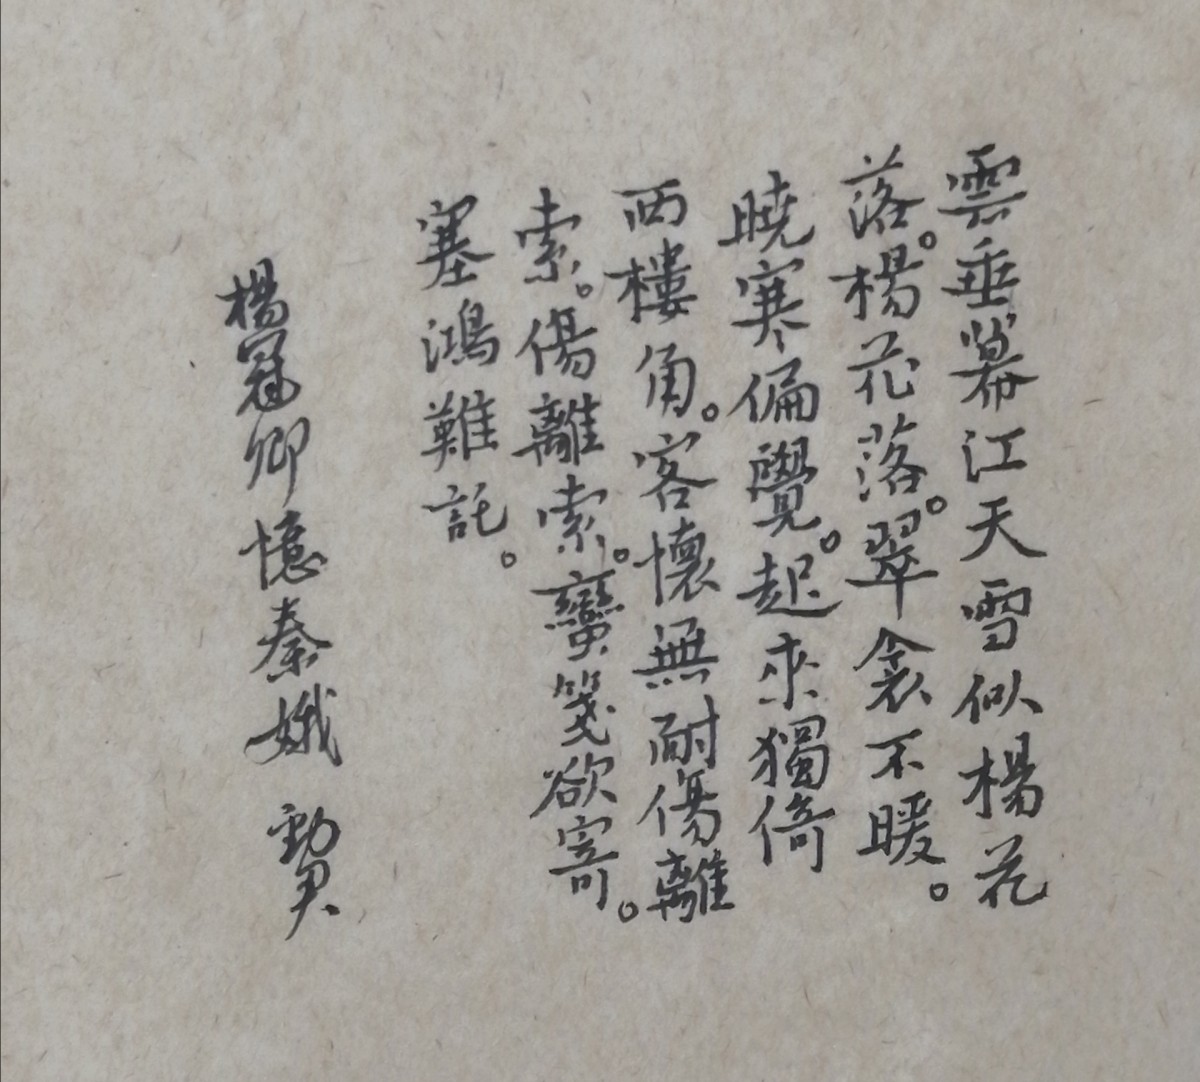 雲垂幕江天雪似楊花
落。楊花落。翠衾不暖。
曉寒偏覺。起來獨倚
西樓角。客懷無耐傷離
索。傷離索。蠻箋欲寄。
塞鴻難託。
楊冠卿憶秦娥 勁男